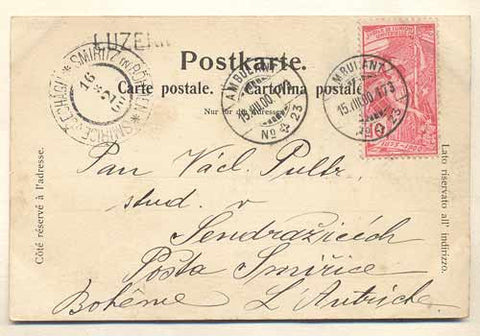 LUZERN
Postkarte.
Carte postale. Cartolina postale
Nur für die Adresse.
SMIRITZ in BÖHMEN
SMIŘICE v ČECHÁCH
16
AMBULANT
15.VIII.00
No 23
AMBULANT
15.VIII.00
No 23
Côté réservé à l'adresse.
Lato riservato all' indirizzo.
Pan Václ. Pultr.
stud. v
Sendražicích
Pošta Smiřice
Bohême L'Autriche